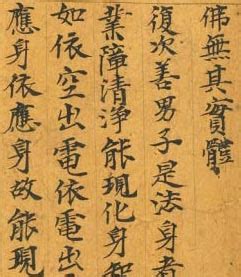 佛無其實體
復次善男子是法身者
業障清淨能現化身智
如依空出電依電出
應身依應身故能現